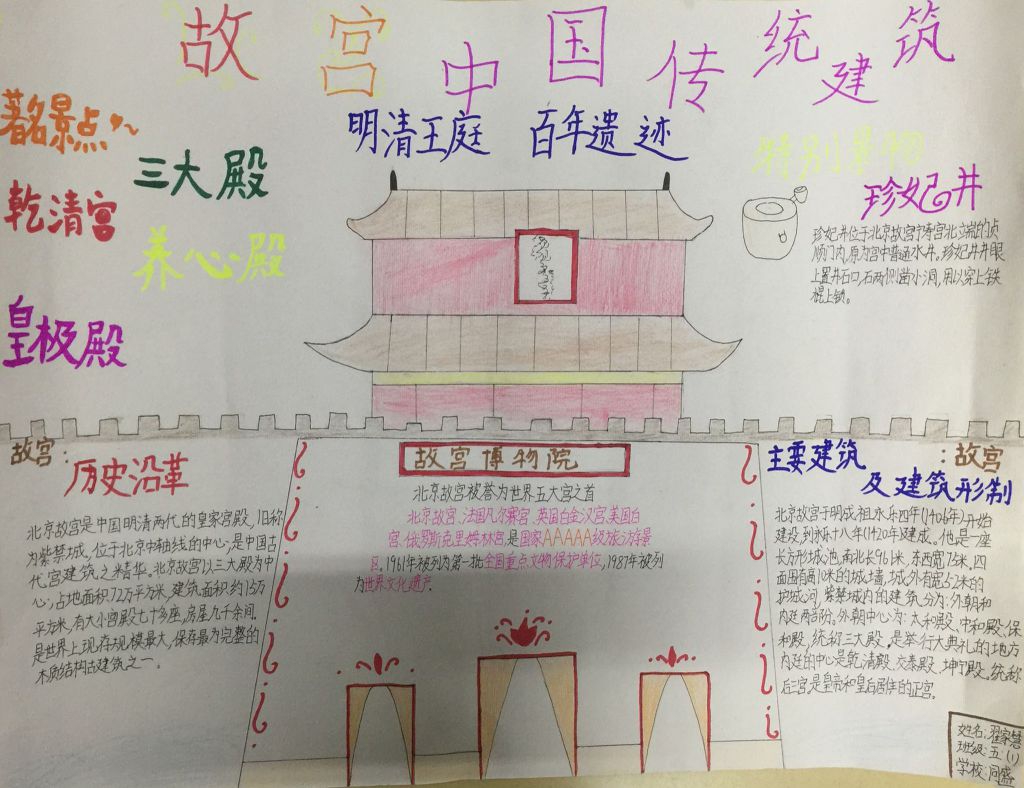 故宫中国传统建筑
明清王庭 百年遗迹
著名景点
三大殿
乾清宫
养心殿
皇极殿
特别景物
珍妃井
珍妃井位于北京故宫宁寿宫北端的贞
顺门内,原为宫中普通水井。珍妃井井眼
上置井口石,石两侧凿小洞,用以穿上铁
棍上锁。
故宫:
历史沿革
北京故宫是中国明清两代的皇家宫殿,旧称
为紫禁城,位于北京中轴线的中心,是中国古
代宫建筑之精华。北京故宫以三大殿为中
心,占地面积72万平方米,建筑面积约15万
平方米,有大小宫殿七十多座,房屋九千余间。
是世界上现存规模最大,保存最为完整的
木质结构古建筑之一。
故宫博物院
北京故宫被誉为世界五大宫之首
北京故宫、法国凡尔赛宫、英国白金汉宫、美国白
宫、俄罗斯克里姆林宫是国家AAAAA级旅游景
区。1961年被列为第一批全国重点文物保护单位,1987年被列
为世界文化遗产。
主要建筑:故宫
及建筑形制
北京故宫于明成祖永乐四年(1406年)开始
建设,到永乐十八年(1420年)建成。他是一座
长方形城池,南北长961米,东西宽75米,四
面围有高10米的城墙,城外有宽52米的
护城河,紫禁城内的建筑分为:外朝和
内廷两部份。外朝中心为:太和殿、中和殿、保
和殿,统称三大殿,是举行大典礼的地方
内廷的中心是乾清殿、交泰殿、坤宁殿。统称
后三宫,是皇帝和皇后居住的正宫。
姓名:翟家慧
班级:五(1)
学校:同盛